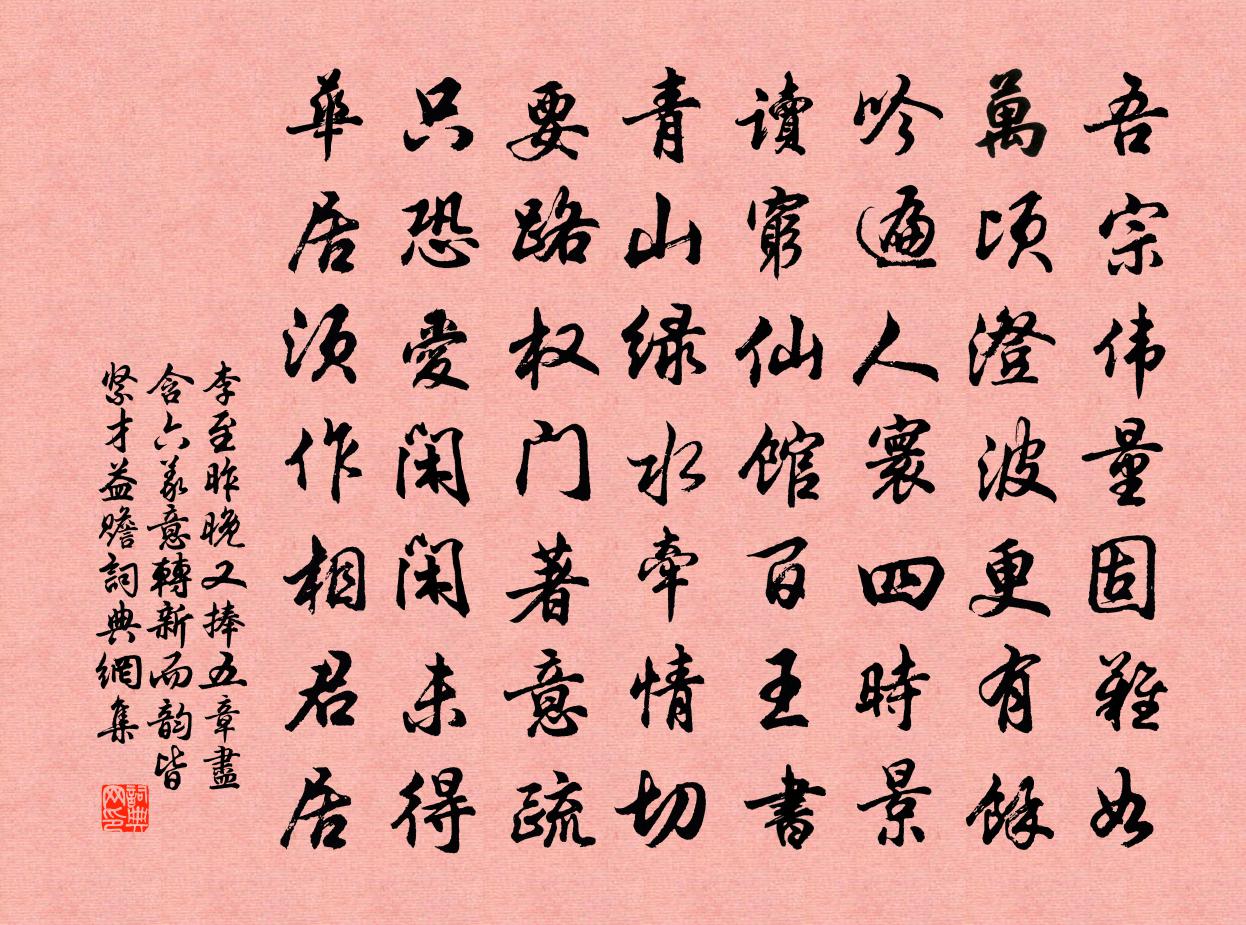 吾宗伟量固難如
萬頃澄波更有餘
吟遍人寰四時景
讀窮仙馆百王書
青山绿水牽情切
要路权门著意疏
只恐愛闲闲未得
華居须作相君居
李至昨晚又捧五章盡
含六義意轉新而韵皆
緊才益贍詞典網集
詞典网印